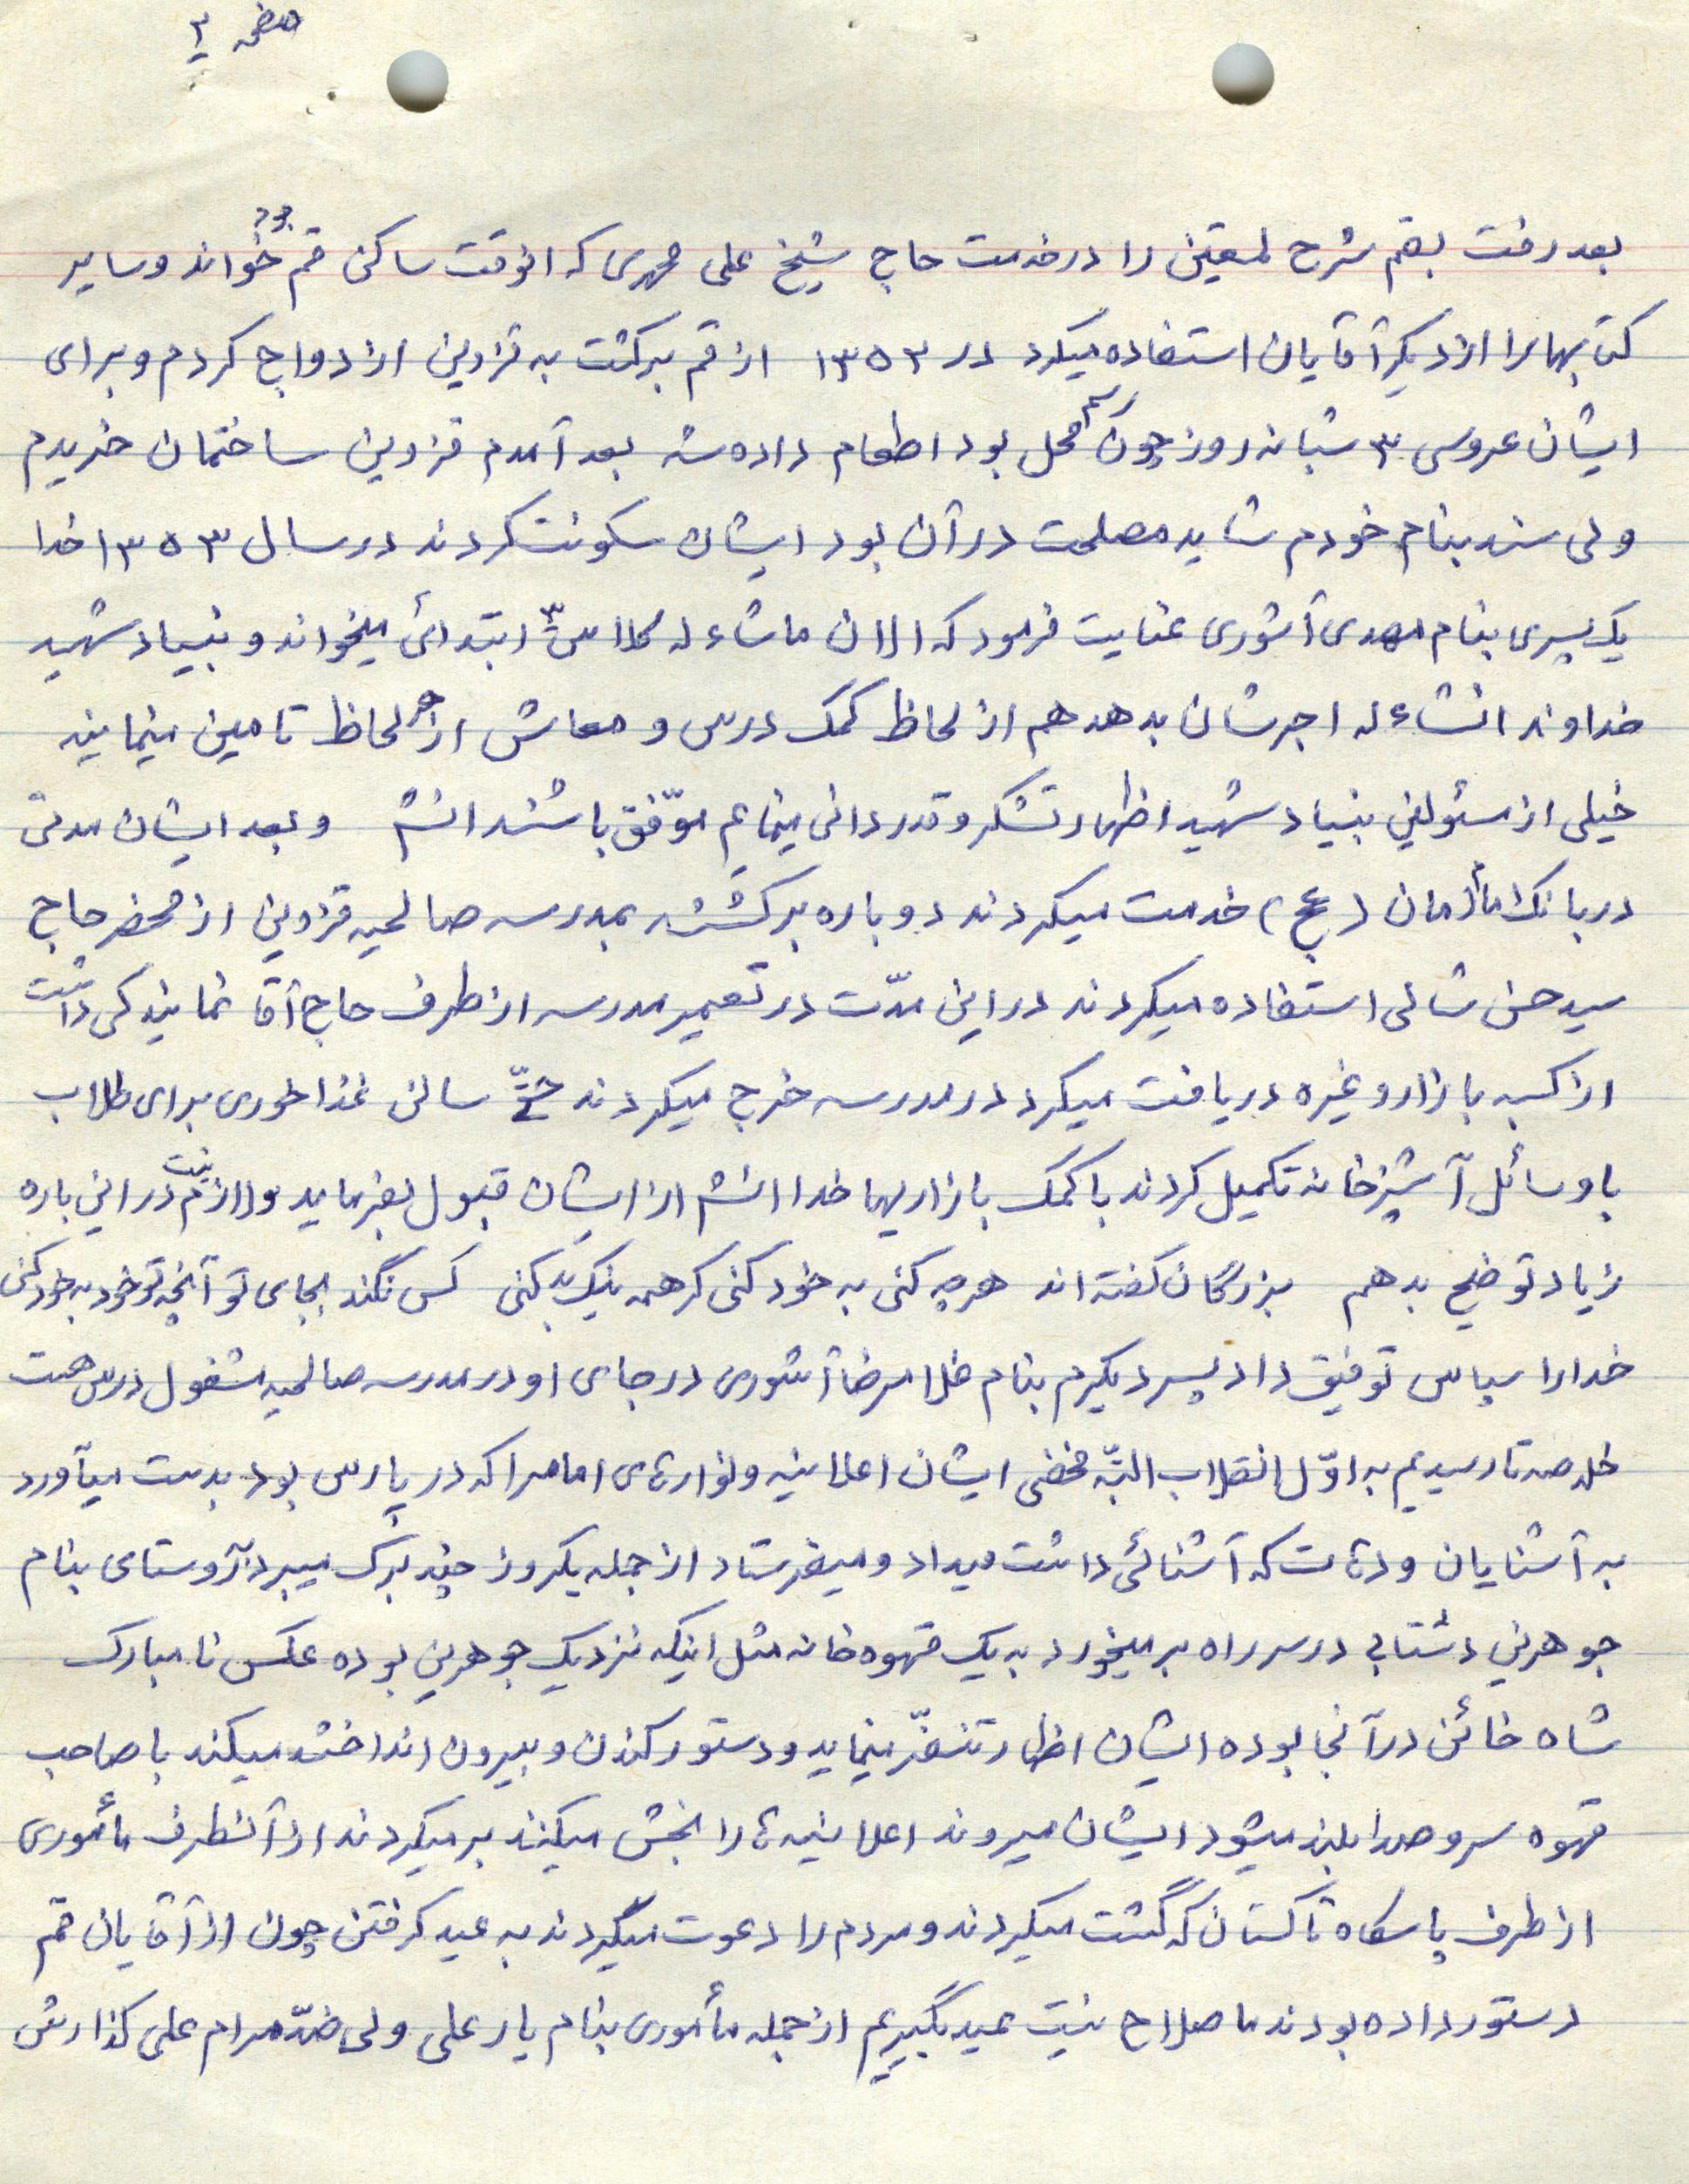 صفحه ۳
بعد رفت بقم شرح لمعتین را در خدمت حاج شیخ علی محمدی که انوقت ساکن قم بود خواند و سایر
کتابها را از دیگر آقایان استفاده میکرد در ۱۳۵۳ از قم برگشت به قزوین ازدواج کردم و برای
ایشان عروسی ۳ شبانه روز چون رسم محل بود اطعام داده شد بعد آمدم قزوین ساختمان خریدم
ولی سند بنام خودم شاید مصلحت در آن بود ایشان سکونت کردند در سال ۱۳۵۳ خدا
یک پسری بنام مهدی آشوری عنایت فرمود که الان ماشاءله کلاس ۳ ابتدائی میخواند و بنیاد شهید
خداوند انشاءله اجرشان بدهد هم از لحاظ کمک درس و معاش از هر لحاظ تامین مینمایند
خیلی از مسئولین بنیاد شهید اظهار تشکر و قدردانی مینمایم موّفق باشند انشم و بعد ایشان مدتی
در بانک امام زمان (عج) خدمت میکردند دوباره برگشتند بمدرسه صالحیه قزوین از محضر حاج
سید حسن شالی استفاده میکردند در این مدّت در تعمیر مدرسه از طرف حاج آقا نمایندگی داشت
از کسبه بازار و غیره دریافت میکرد در مدرسه خرج میکردند حتّی سالن غذا خوری برای طلاب
با وسائل آشپزخانه تکمیل کردند با کمک بازاریها خدا انشم از ایشان قبول بفرماید و لازم نیت در این باره
زیاد توضیح بدهم بزرگان گفته اند هر چه کنی به خود کنی گر همه نیک بد کنی کس نکند بجای تو آنچه تو خود به خود کنی
خدا را سپاس توفیق داد پسر دیگرم بنام غلامرضا آشوری در جای او در مدرسه صالحیه مشغول درس هست
خلاصه تا رسیدیم به اوّل انقلاب البتّه مخفی ایشان اعلامیه و نوارهای امام را که در پارس بود بدست میآورد
به آشنایان و دهات که آشنائی داشت میداد و میفرستاد از جمله یکروز چند برگ میبرد از روستای بنام
جوهرین دشتابی در سر راه بر میخورد به یک قهوه خانه مثل اینکه نزدیک جوهرین بوده عکس نا مبارک
شاه خائن در آنجا بوده ایشان اظهار تنفّر مینماید و دستور کندن و بیرون انداختند میکند با صاحب
قهوه سر و صدا بلند میشود ایشان میروند اعلامیه ها را پخش میکنند بر میگردند از آنطرف مأموری
از طرف پاسگاه تاکستان که گشت میکردند و مردم را دعوت میکردند به عید گرفتن چون از آقایان قم
دستور داده بودند ما صلاح نیست عید بگیریم از جمله مأموری بنام یار علی ولی ضدّ مرام علی گذارش